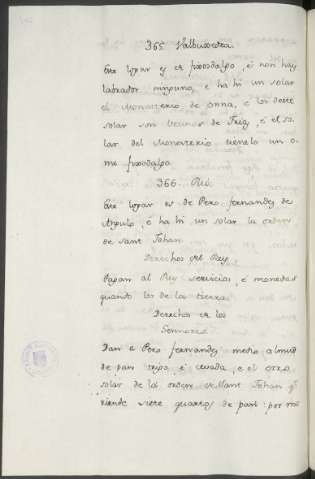 365 Valbuxeda
Este logar y es fixosdalgo, é non hay
labrador ninguno, e ha hi un solar
el Monasterio de onna, é los deste
solar son vecinos de Frias, é el so-
lar del Monasterio tienelo un o-
me fixodalgo.
366 Rio.
Este logar es de Pero Fernandez de
Angulo, é ha hi un solar la orden
de Sant Johan
Derechos del Rey
Pagan al Rey servicios, é monedas
quando los de la tierra
Derechos de los
Sennores
Dan a Pero Fernandez medio almud
de pan trigo, é cevada, e el otro
solar de la orden de Sant Johan
riende siete quartos de pan: por